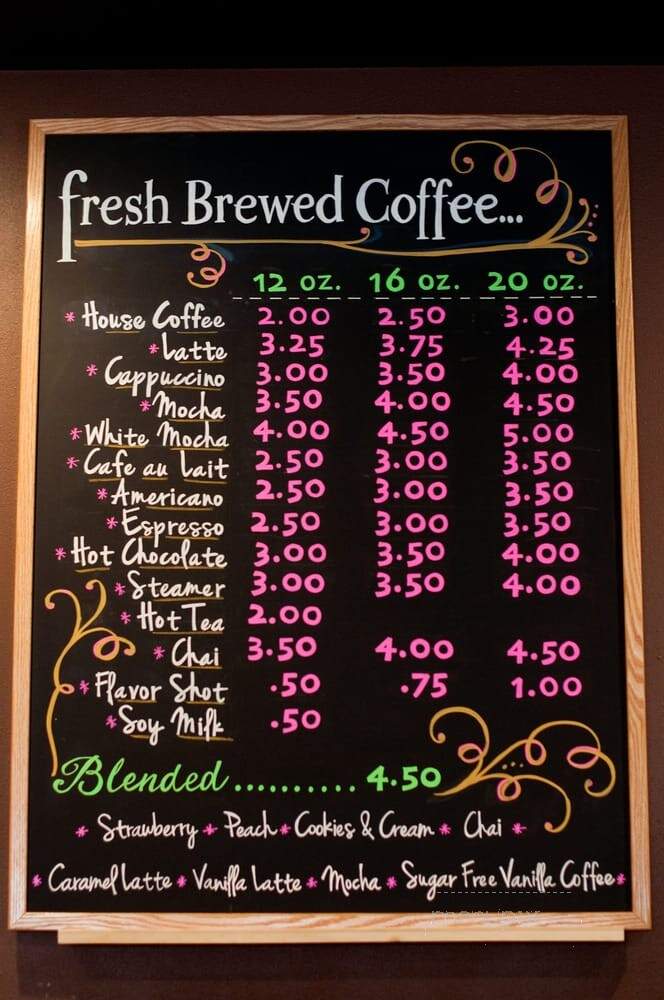 fresh Brewed Coffee...
12 oz. 16 oz. 20 oz.
* House Coffee 2.00 2.50 3.00
* Latte 3.25 3.75 4.25
* Cappuccino 3.00 3.50 4.00
* Mocha 3.50 4.00 4.50
* White Mocha 4.00 4.50 5.00
* Cafe au Lait 2.50 3.00 3.50
* Americano 2.50 3.00 3.50
* Espresso 2.50 3.00 3.50
* Hot Chocolate 3.00 3.50 4.00
* Steamer 3.00 3.50 4.00
* Hot Tea 2.00
* Chai 3.50 4.00 4.50
* Flavor Shot .50 .75 1.00
* Soy Milk .50
Blended .......... 4.50
* Strawberry * Peach * Cookies & Cream * Chai *
* Caramel Latte * Vanilla Latte * Mocha * Sugar Free Vanilla Coffee *